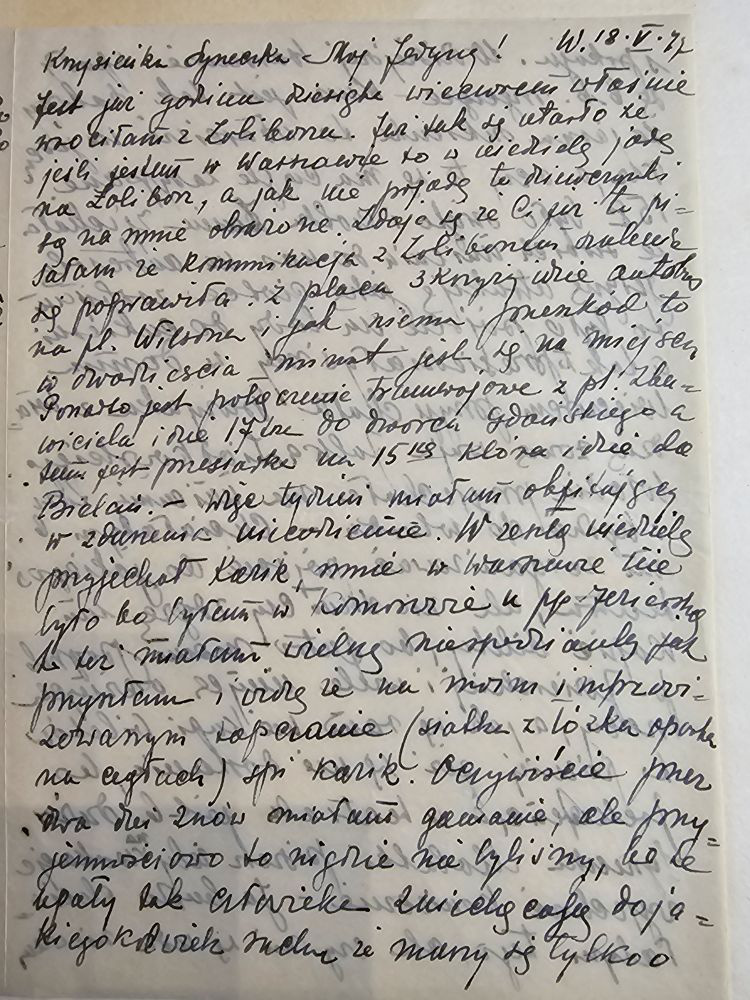 W. 18.V.47
Krysieńka Syneczka – Moj Jedyny!
Jest już godzina dziesiąta wieczorem właśnie
wrociłam z Żoliborza. Już tak się utarło że
jeśli jestem w Warszawie to w niedzielę jadę
na Żolibor, a jak nie pojadę to dziewczynki
są na mnie obrażone. Zdaje się że Ci już to pi=
sałam że komunikacja z Żoliborzem szalenie
się poprawiła. Z placu 3 Krzyzy idzie autobus
na pl. Wilsona i jak niema przeszkód to
w dwadzieścia minut jest się na miejscu
Ponadto jest połączenie tramwajowe z pl. Zba=
wiciela idzie 17-ka do dworca Gdańskiego a
tam jest przesiadka na 15kę która idzie do
Bielan. – Więc tydzień miałam obfitujący
w zdarzenia niecodzienne. W zeszłą niedzielę
przyjechał Kazik, mnie w Warszawie nie
było bo byłam w Komorowie u pp.
to też miałam wielką niespodziankę jak
przyszłam i widzę że na moim improwi=
zowanym tapczanie (siatka z łóżka oparta
na cegłach) spi Kazik. Oczywiście przez
dwa dni znów miałam ganianie, ale przy=
jemnościowo to nigdzie nie byliśmy, bo te
upały tak człowieka zniechęcają do ja=
kiegokolwiek ruchu że marzy się tylko o